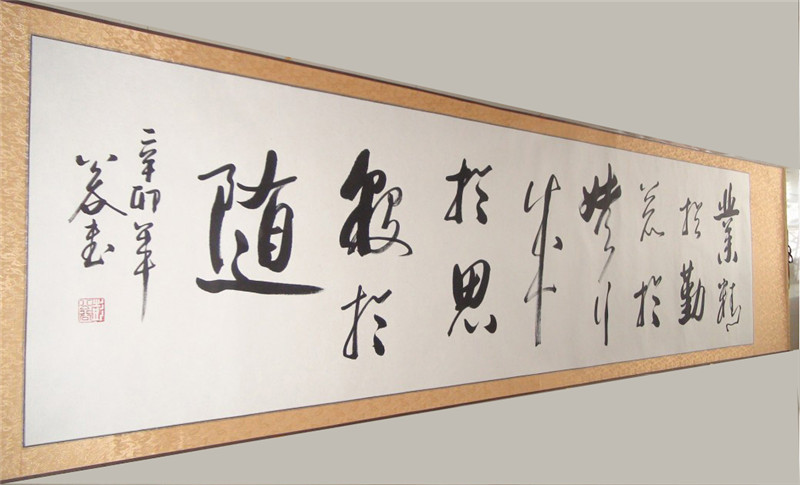 業精
於勤
荒於
嬉行
成
於思
毀於
随
辛卯年
书